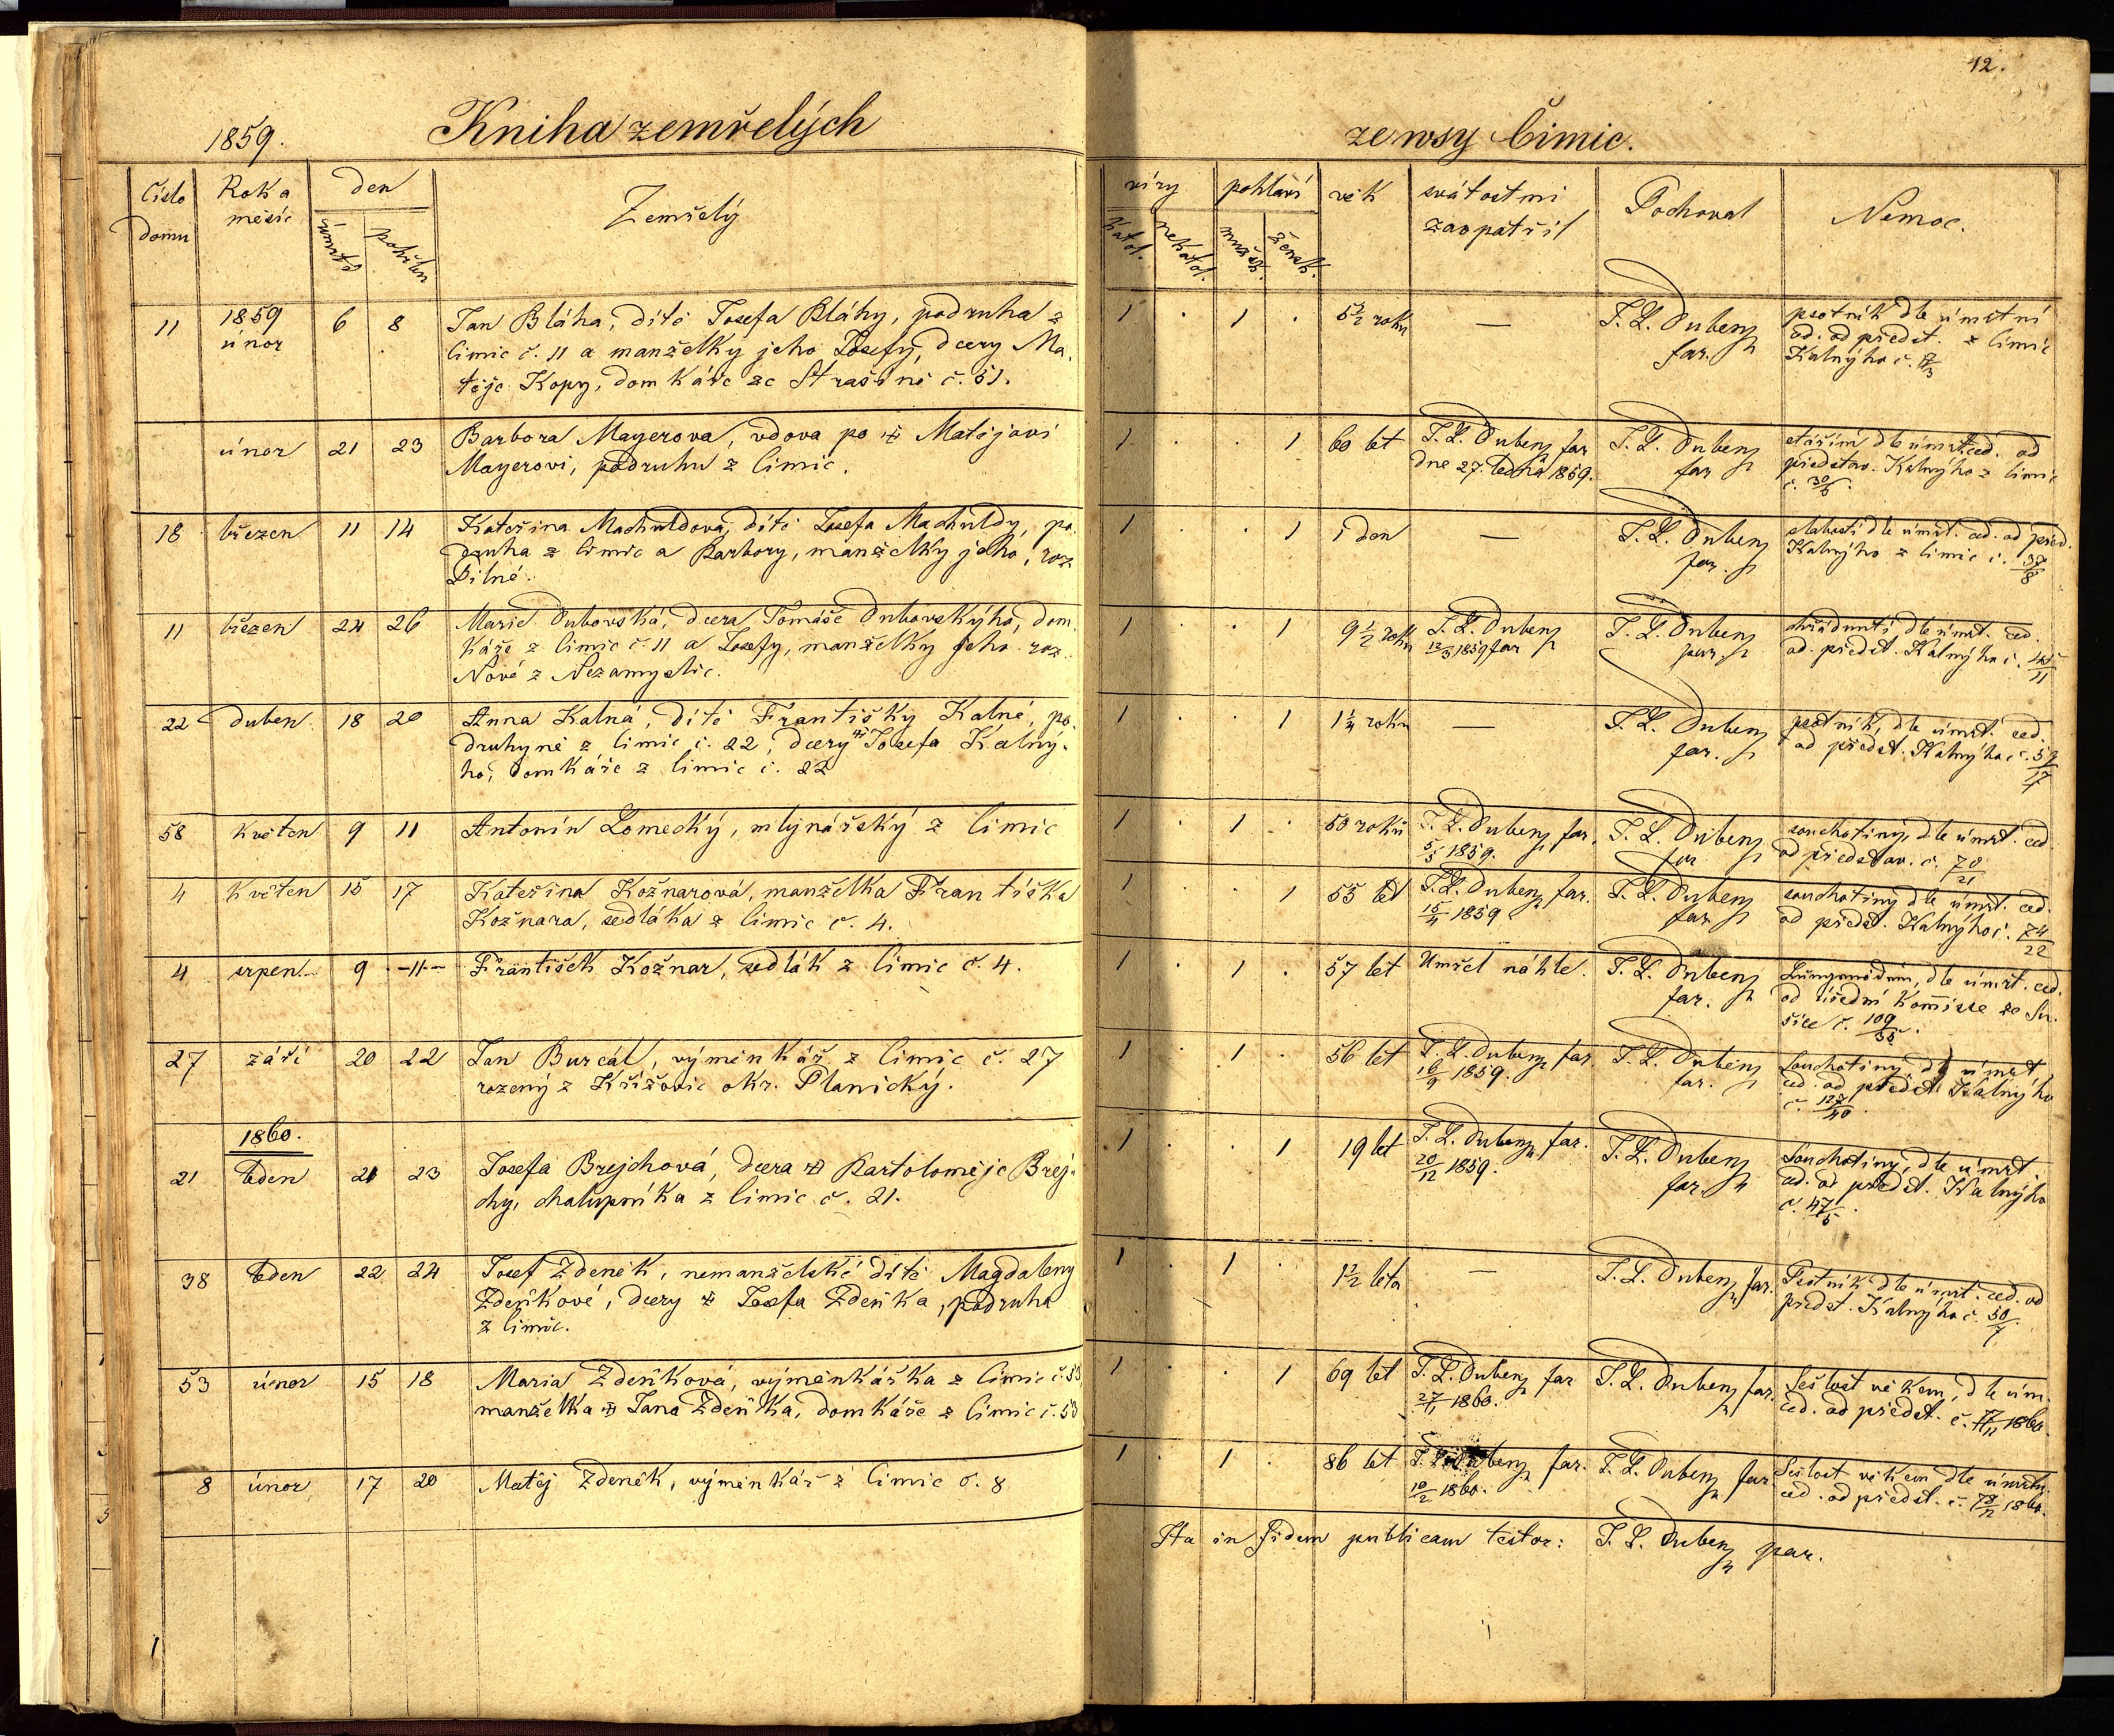 12.
1859. Kniha zemřelých
ze wsy Čimic.
Číslo domu
Rok a měsíc
den
úmrtí
pohřbu
Zemřelý
víry
katol.
nekatol.
pohlaví
mužsk.
žensk.
věk
svátostmi zaopatřil
Pochoval
Nemoc.
11 1859 únor 6 8 Jan Bláha, dítě Josefa Bláhy, podruha z
Čimic č. 11 a manželky jeho Josefy, dcery Ma-
těje Kopy, domkáře ze Strašíně č. 51.
1 . 1 . 5½ roku — T. L. Dubenz far.
psotník dle úmrtní
od předst. z Čimic
Kalnýho č.
únor 21 23 Barbora Mayerova, vdova po Matějovi
Mayerovi, podruhu z Čimic.
1 . . 1 60 let T. L. Dubenz far
dne 27. ledna 1859.
T. L. Dubenz far
stářím dle úmrt. ced. od
představ. Kalnýho z Čimic
č. 30/6.
18 březen 11 14 Kateřina Machuldová, dítě Josefa Machuldy, po-
druha z Čimic a Barbory, manželky jeho, roz.
Pilné.
1 . . 1 1 den — T. L. Dubenz far.
slabostí dle úmrt. ced. od před.
Kalnýho z Čimic č. 38/8
11 březen 24 26 Marie Dubovská, dcera Tomáše Dubovskýho, dom-
káře z Čimic č. 11 a Josefy, manželky jeho roz.
Nové z Nezamyslic.
1 . . 1 9½ roku T. L. Dubenz
12/3 1859 far
T. L. Dubenz par.
dle úmrt. ced.
od předst. Kalnýho č.
22 duben 18 20 Anna Kalná, dítě Františky Kalné, po-
druhyně z Čimic č. 22, dcery Josefa Kalný-
ho, domkáře z Čimic č. 22
1 . . 1 1¼ roku — T. L. Dubenz far.
psotník, dle úmrt. ced.
od předst. Kalnýho č.
58 květen 9 11 Antonín Lomecký, mlynářský z Čimic
1 . 1 . 50 roků T. L. Dubenz far,
5/5 1859.
T. L. Dubenz far
souchotiny, dle úmrt. ced
od představ. č. 70/21
4 květen 15 17 Kateřina Kožnarová, manželka Františka
Kožnara, sedláka z Čimic č. 4.
1 . . 1 55 let T. L. Dubenz far.
15/4 1859
T. L. Dubenz far
souchotiny dle úmrt. ced.
od předst. Kalnýho č. 74/22
4 srpen 9 -11- František Kožnar, sedlák z Čimic č. 4.
1 . 1 . 57 let Umřel náhle. T. L. Dubenz far.
dle úmrt. ced.
od úřední komisse ze Su-
šice č. 109/35.
27 září 20 22 Jan Burcál, výměnkář z Čimic č. 27
rozený z Křížovic okr. Planický.
1 . 1 . 56 let T. L. Dubenz far.
16/9 1859.
T. L. Dubenz far.
Souchotiny, dle úmrt
ced. od předst. Kalnýho
č. 127/40.
1860.
21 leden 21 23 Josefa Brejchová, dcera Bartoloměje Brej-
chy, chalupníka z Čimic č. 21.
1 . . 1 19 let T. L. Dubenz far.
20/12 1859.
T. L. Dubenz far.
Souchotiny, dle úmrt.
ced. od předst. Kalnýho
č. 47/5.
38 leden 22 24 Josef Zdeněk, nemanželské dítě Magdaleny
Zdeňkové, dcery Josefa Zdeňka, podruha
z Čimic.
1 . 1 . 1½ leta — T. L. Dubenz far.
Psotník dle úmrt. ced. od
předst. Kalnýho č. 50/7.
53 únor 15 18 Maria Zdeňková, výměnkářka z Čimic č. 53,
manželka Jana Zdeňka, domkáře z Čimic č. 53
1 . . 1 69 let T. L. Dubenz far
27/1 1860.
T. L. Dubenz far.
Sešlost věkem, dle úm.
ced. od předst. č. 77/11 1860.
8 únor 17 20 Matěj Zdeněk, výměnkář z Čimic č. 8
1 . 1 . 86 let T. L. Dubenz far.
10/2 1860.
T. L. Dubenz far.
Sešlost věkem dle úmrtn.
ced. od předst. č. 78/12 1860.
Ita in fidem publicam testor: T. L. Dubenz par.